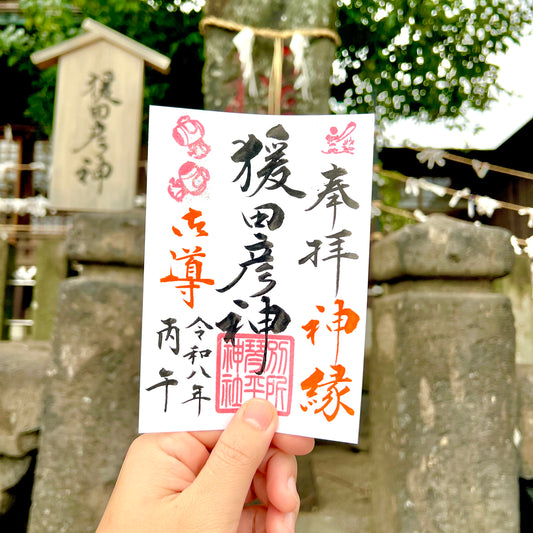 猿田彦神
奉拝
神縁
猿田彦神
別所
琴平
神社
お導
令和八年
丙午